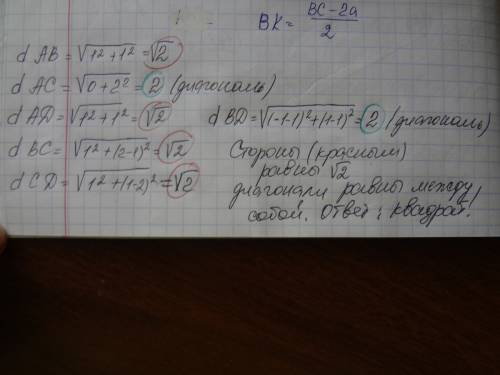 BK = (BC-2a)/2
d AB = √(1²+1²) = √2
d AC = √(0+2²) = 2 (диагональ)
d AD = √(1²+1²) = √2
d BD = √((-1-1)²+(1-1)²) = 2 (диагональ)
d BC = √(1²+(2-1)²) = √2
d CD = √(1²+(1-2)²) = √2
Стороны (красным)
равны √2
диагонали равны между
собой. Ответ: квадрат!